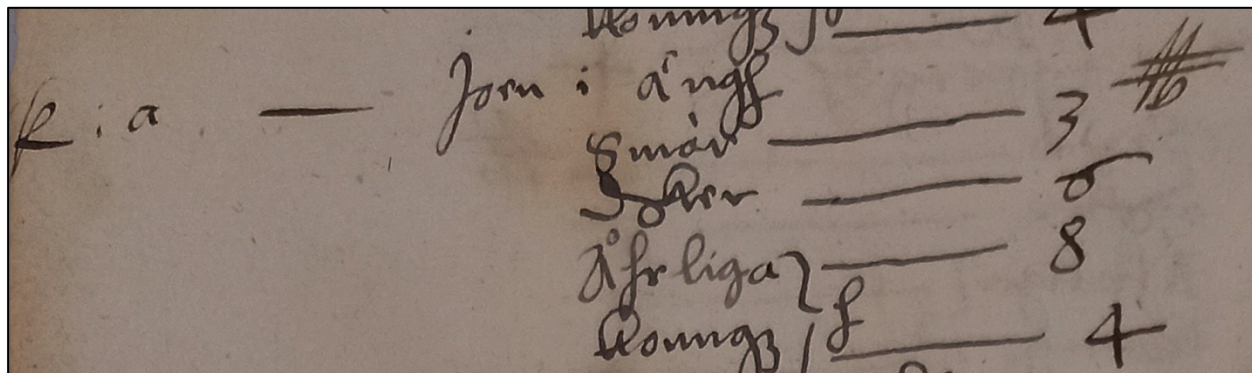 Konungz 4
k : a — Joen i Ängh
Smör — 3
Oxer — 6
Åhrliga — 8
Konungz h — 4